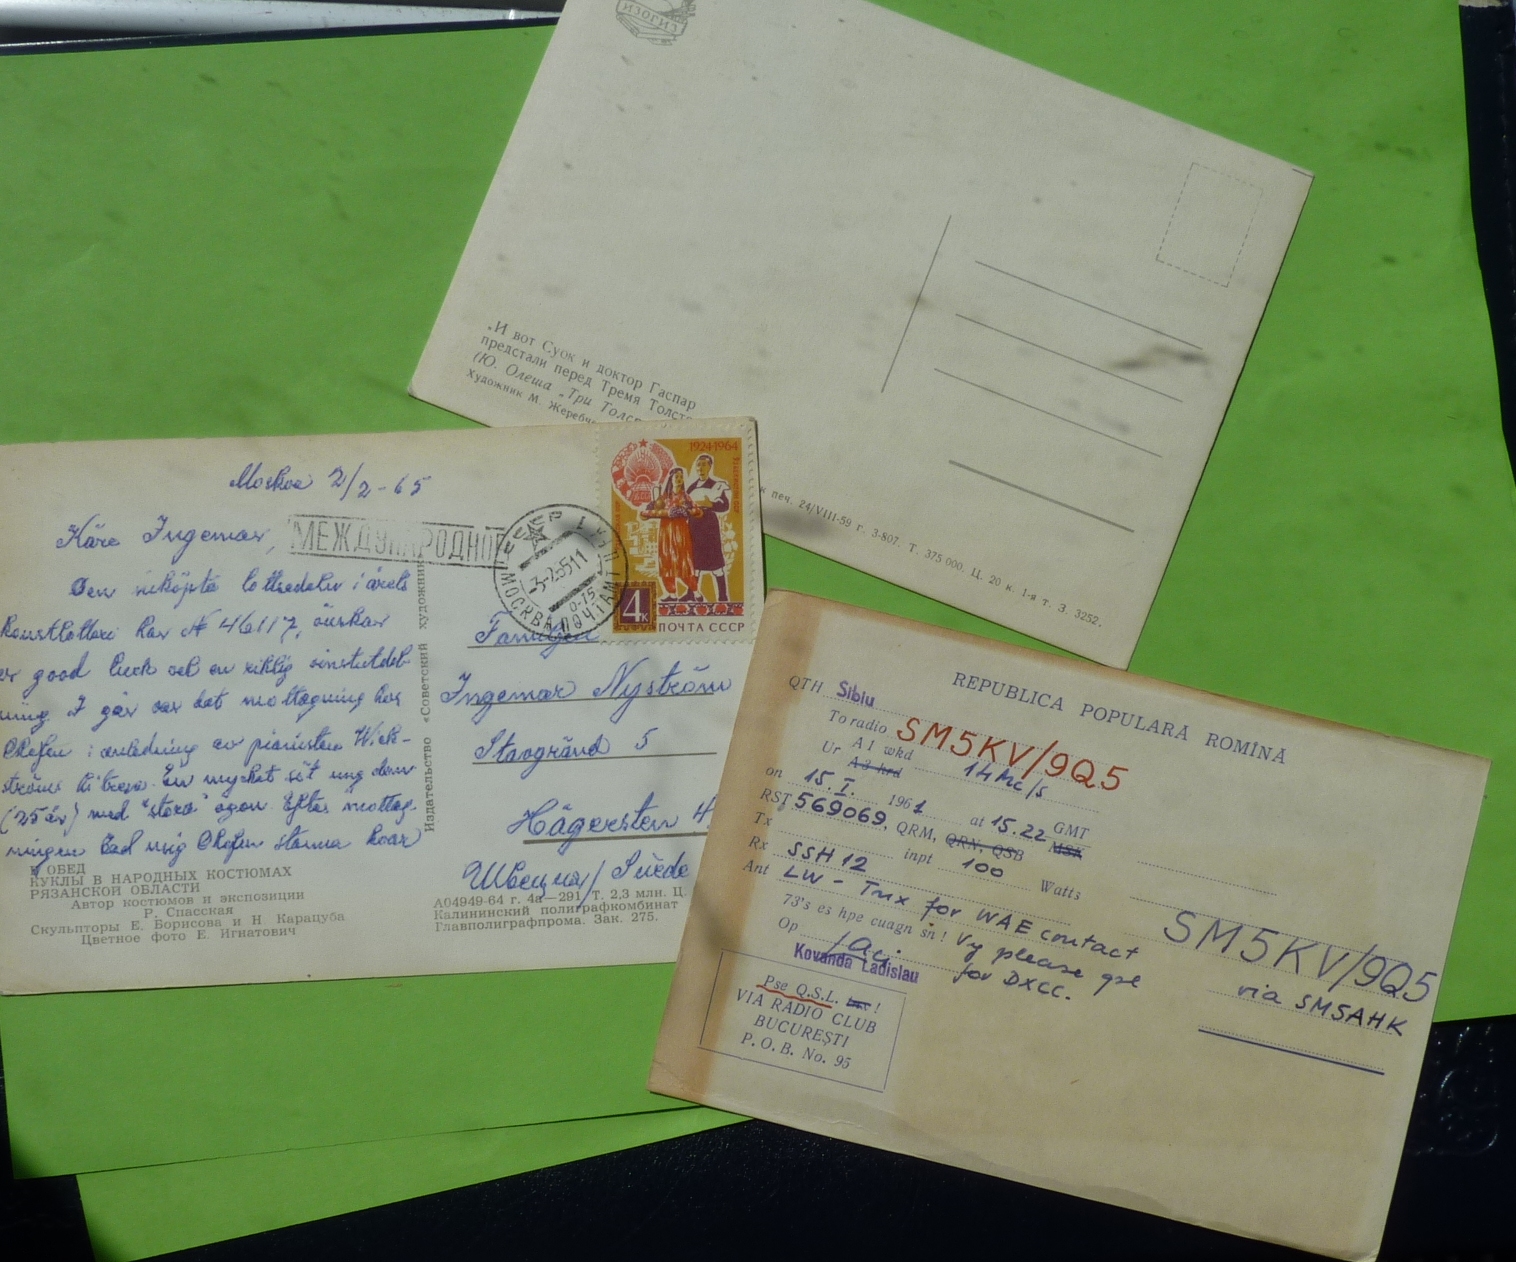 ИЗОГИЗ
„И вот Суок и доктор Гаспар
предстали перед Тремя Толст
(Ю. Олеша „Три Толст
Художник М. Жереб
к печ. 24/VIII-59 г. З-807. Т. 375 000. Ц. 20 к. 1-я т. З. 3252.
Moskva 2/2-65
Käre Ingemar,
МЕЖДУНАРОДНОЕ
Den inköpta lottsedeln i årets
konstlotteri har № 46117, önskar
er good luck och en riklig vinstutdel-
ning. I går var det mottagning hos
Chefen i anledning av pianisten Wick-
ströms hitresa. En mycket söt ung dam
(25 år) med "stora" ögon. Efter mottag-
ningen bad mig Chefen stanna kvar
ОБЕД
КУКЛЫ В НАРОДНЫХ КОСТЮМАХ
РЯЗАНСКОЙ ОБЛАСТИ
Автор костюмов и экспозиции
Р. Спасская
Скульпторы Е. Борисова и Н. Карацуба
Цветное фото Е. Игнатович
Издательство «Советский художник
1924-1964
4к
ПОЧТА СССР
СССР
МОСКВА ПОЧТАМТ
Familjen
Ingemar Nyström
Stavgränd 5
Hägersten 4
Швеция/Suède
А04949-64 г. 4а-291 Т. 2,3 млн. Ц.
Калининский полиграфкомбинат
Главполиграфпрома. Зак. 275.
REPUBLICA POPULARA ROMÎNA
QTH Sibiu
To radio SM5KV/9Q5
Ur A1 wkd 14Mc/s
A3 hrd
on 15.I. 1961 at 15.22 GMT
RST 569069, QRM, QRN, QSB MSK
Tx inpt 100 Watts
Rx SSH 12
Ant LW - Tnx for WAE contact
73's es hpe cuagn sn! Vy please qsl
Op for DXCC.
Kovanda Ladislau
Pse Q.S.L. !
VIA RADIO CLUB
BUCUREȘTI
P. O. B. No. 95
SM5KV/9Q5
via SM5AHK